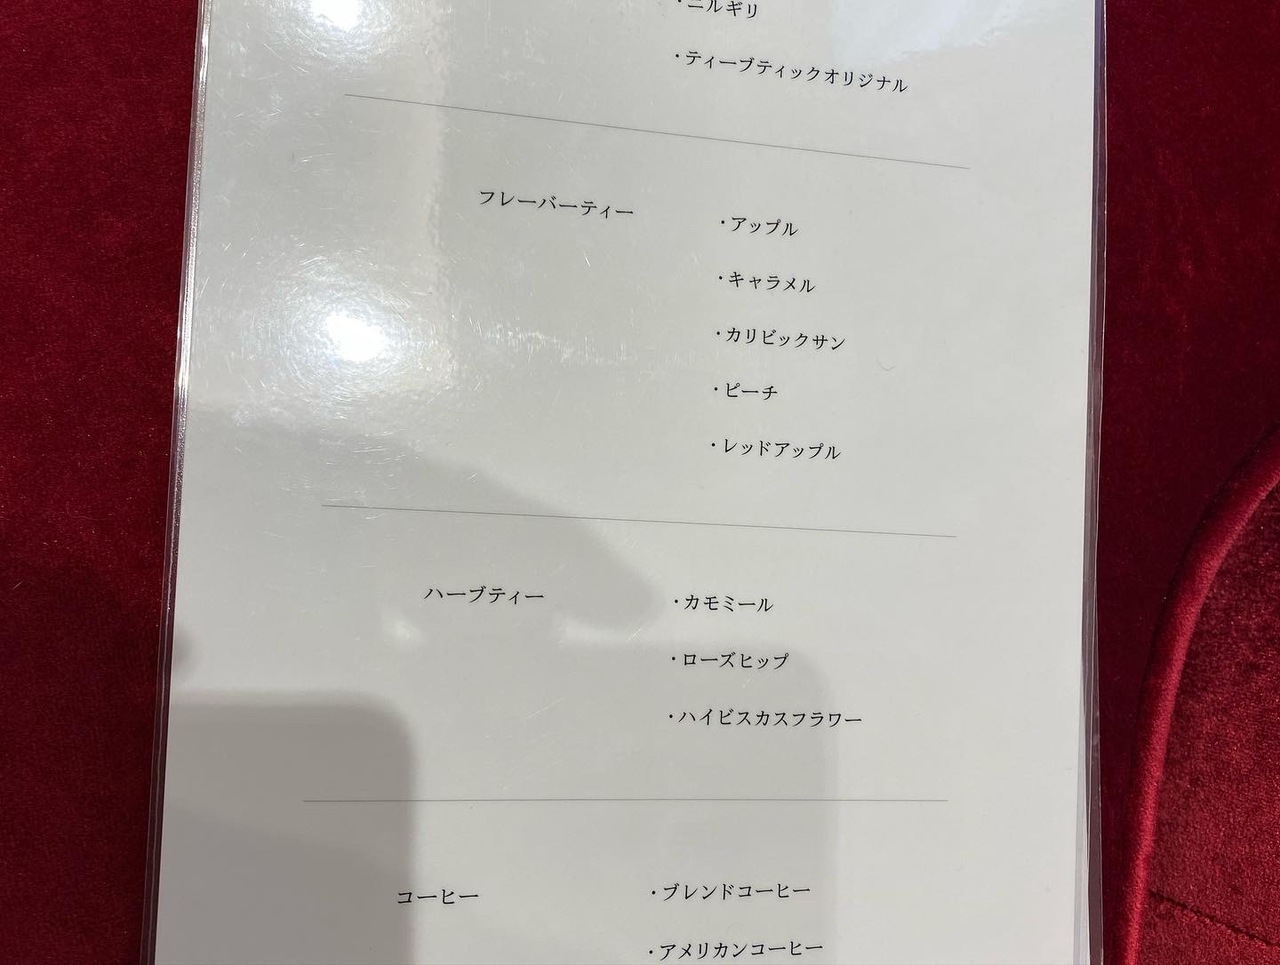 ・ニルギリ
・ティーブティックオリジナル
フレーバーティー
・アップル
・キャラメル
・カリビックサン
・ピーチ
・レッドアップル
ハーブティー
・カモミール
・ローズヒップ
・ハイビスカスフラワー
コーヒー
・ブレンドコーヒー
・アメリカンコーヒー